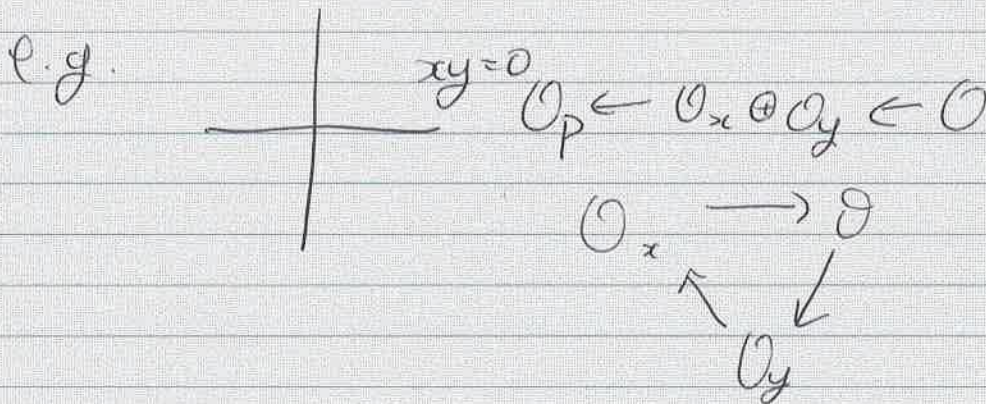 e.g.
xy=0
O_p ← O_x ⊕ O_y ← O
O_x → O
↙
↖
O_y